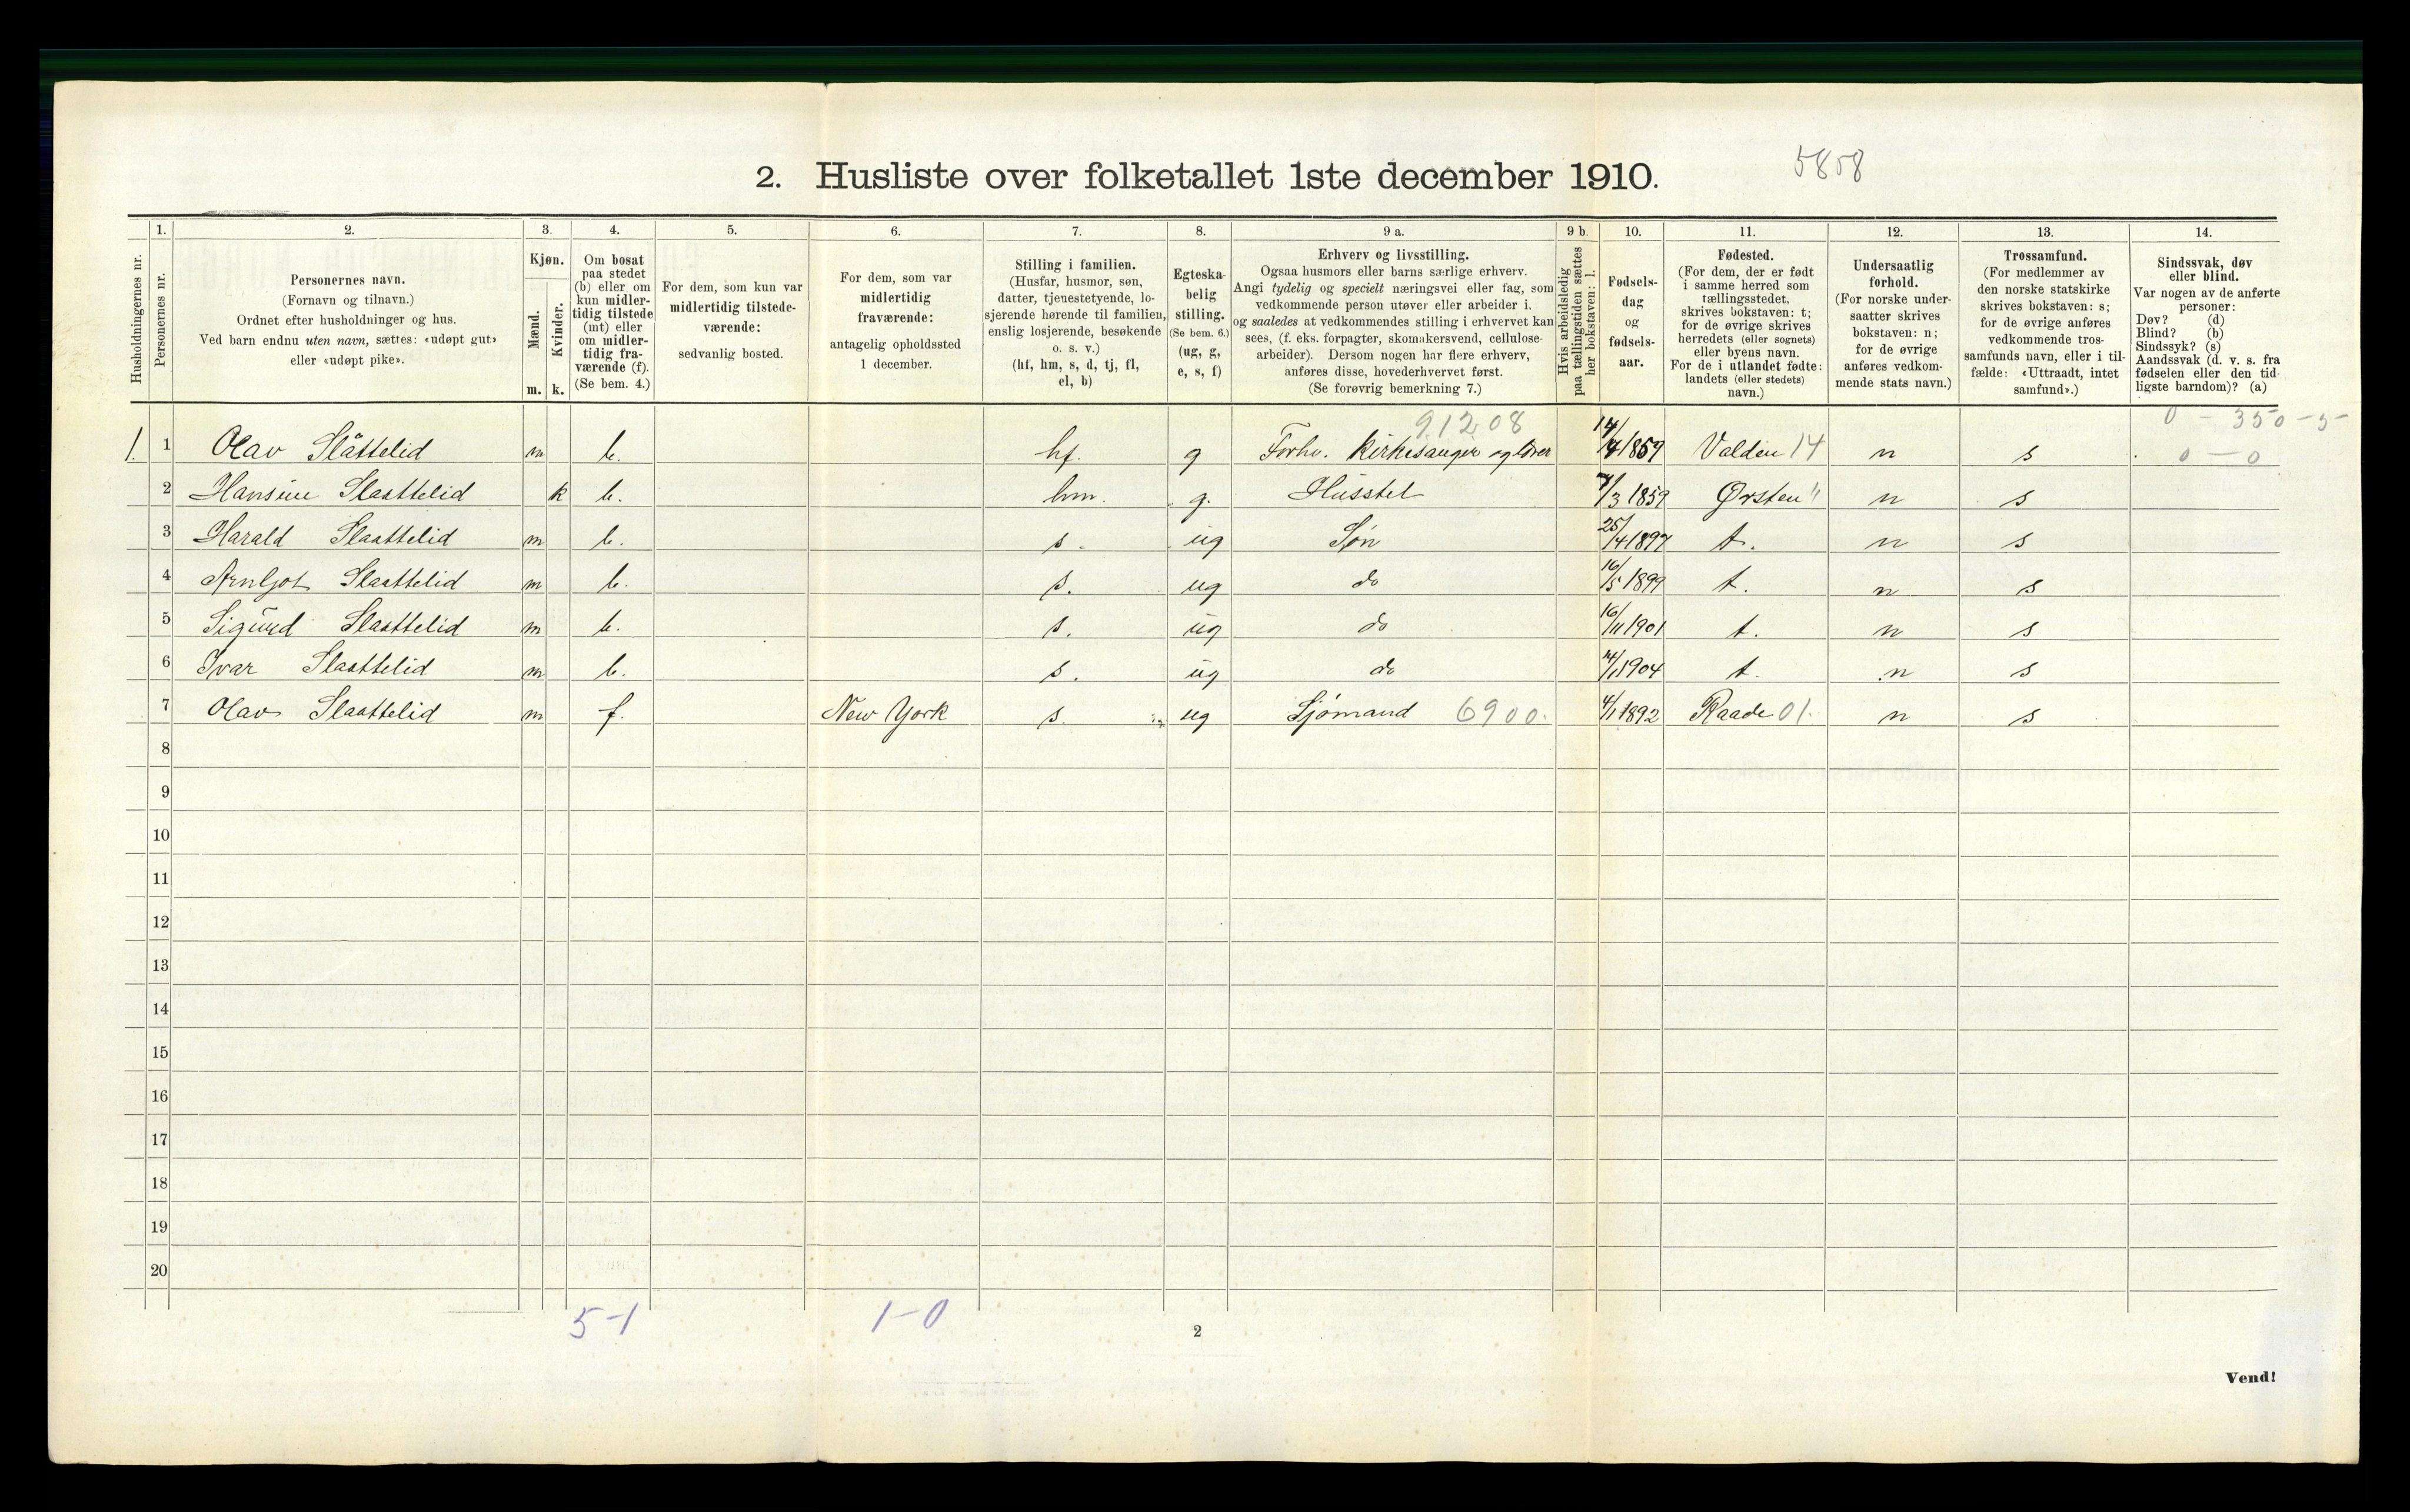 2. Husliste over folketallet 1ste december 1910.
5858
1. 2. 3. 4. 5. 6. 7. 8. 9 a. 9 b. 10. 11. 12. 13. 14.
Husholdningernes nr.
Personernes nr.
Personernes navn.
(Fornavn og tilnavn.)
Ordnet efter husholdninger og hus.
Ved barn endnu uten navn, sættes: «udøpt gut»
eller «udøpt pike».
Kjøn.
Mænd.
Kvinder.
m. k.
Om bosat
paa stedet
(b) eller om
kun midler-
tidig tilstede
(mt) eller
om midler-
tidig fra-
værende (f).
(Se bem. 4.)
For dem, som kun var
midlertidig tilstede-
værende:
sedvanlig bosted.
For dem, som var
midlertidig
fraværende:
antagelig opholdssted
1 december.
Stilling i familien.
(Husfar, husmor, søn,
datter, tjenestetyende, lo-
sjerende hørende til familien,
enslig losjerende, besøkende
o. s. v.)
(hf, hm, s, d, tj, fl,
el, b)
Egteska-
belig
stilling.
(Se bem. 6.)
(ug, g,
e, s, f)
Erhverv og livsstilling.
Ogsaa husmors eller barns særlige erhverv.
Angi tydelig og specielt næringsvei eller fag, som
vedkommende person utøver eller arbeider i.
og saaledes at vedkommendes stilling i erhvervet kan
sees, (f. eks. forpagter, skomakersvend, cellulose-
arbeider). Dersom nogen har flere erhverv,
anføres disse, hovederhvervet først.
(Se forøvrig bemerkning 7.)
Hvis arbeidsledig
paa tællingstiden sættes
her bokstaven: l.
Fødsels-
dag
og
fødsels-
aar.
Fødested.
(For dem, der er født
i samme herred som
tællingsstedet,
skrives bokstaven: t;
for de øvrige skrives
herredets (eller sognets)
eller byens navn.
For de i utlandet fødte:
landets (eller stedets)
navn.)
Undersaatlig
forhold.
(For norske under-
saatter skrives
bokstaven: n;
for de øvrige
anføres vedkom-
mende stats navn.)
Trossamfund.
(For medlemmer av
den norske statskirke
skrives bokstaven: s;
for de øvrige anføres
vedkommende tros-
samfunds navn, eller i til-
fælde: «Uttraadt, intet
samfund».)
Sindssvak, døv
eller blind.
Var nogen av de anførte
personer:
Døv? (d)
Blind? (b)
Sindssyk? (s)
Aandssvak (d. v. s. fra
fødselen eller den tid-
ligste barndom)? (a)
91208 0 - 350 - 5-
1. 1 Olav Slåttelid m b. hf. g Forhv. Kirkesanger og lærer 14/4 1859 Valden 14 n s 0 - 0
2 Hansine Slaattelid k b. hm. g. Husstel 7/3 1859 Ørsten " n s
3 Harald Slaattelid m b. s. ug Søn 25/4 1897 t. n s
4 Arnljot Slaattelid m b. s. ug do 16/5 1899 t. n s
5 Sigurd Slaattelid m b. s. ug do 16/11 1901 t. n s
6 Ivar Slaattelid m b. s. ug do 14/1 1904 t. n s
7 Olav Slaattelid m f. New York s. ug Sjømand 6900. 4/1 1892 Raade 01. n s
8
9
10
11
12
13
14
15
16
17
18
19
20
5-1 1-0
2
Vend!